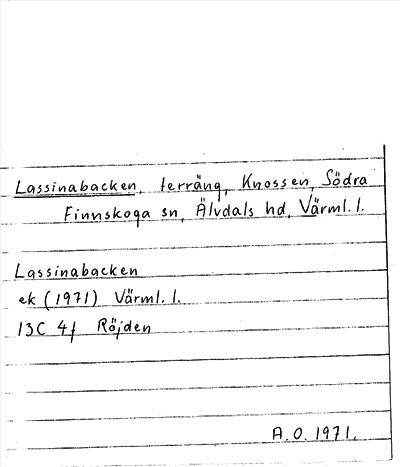 Lassinabacken, terräng, Knossen, Södra
Finnskoga sn, Älvdals hd, Värml. l.
Lassinabacken
ek (1971) Värml. l.
13C 4f Röjden
A. O. 1971.